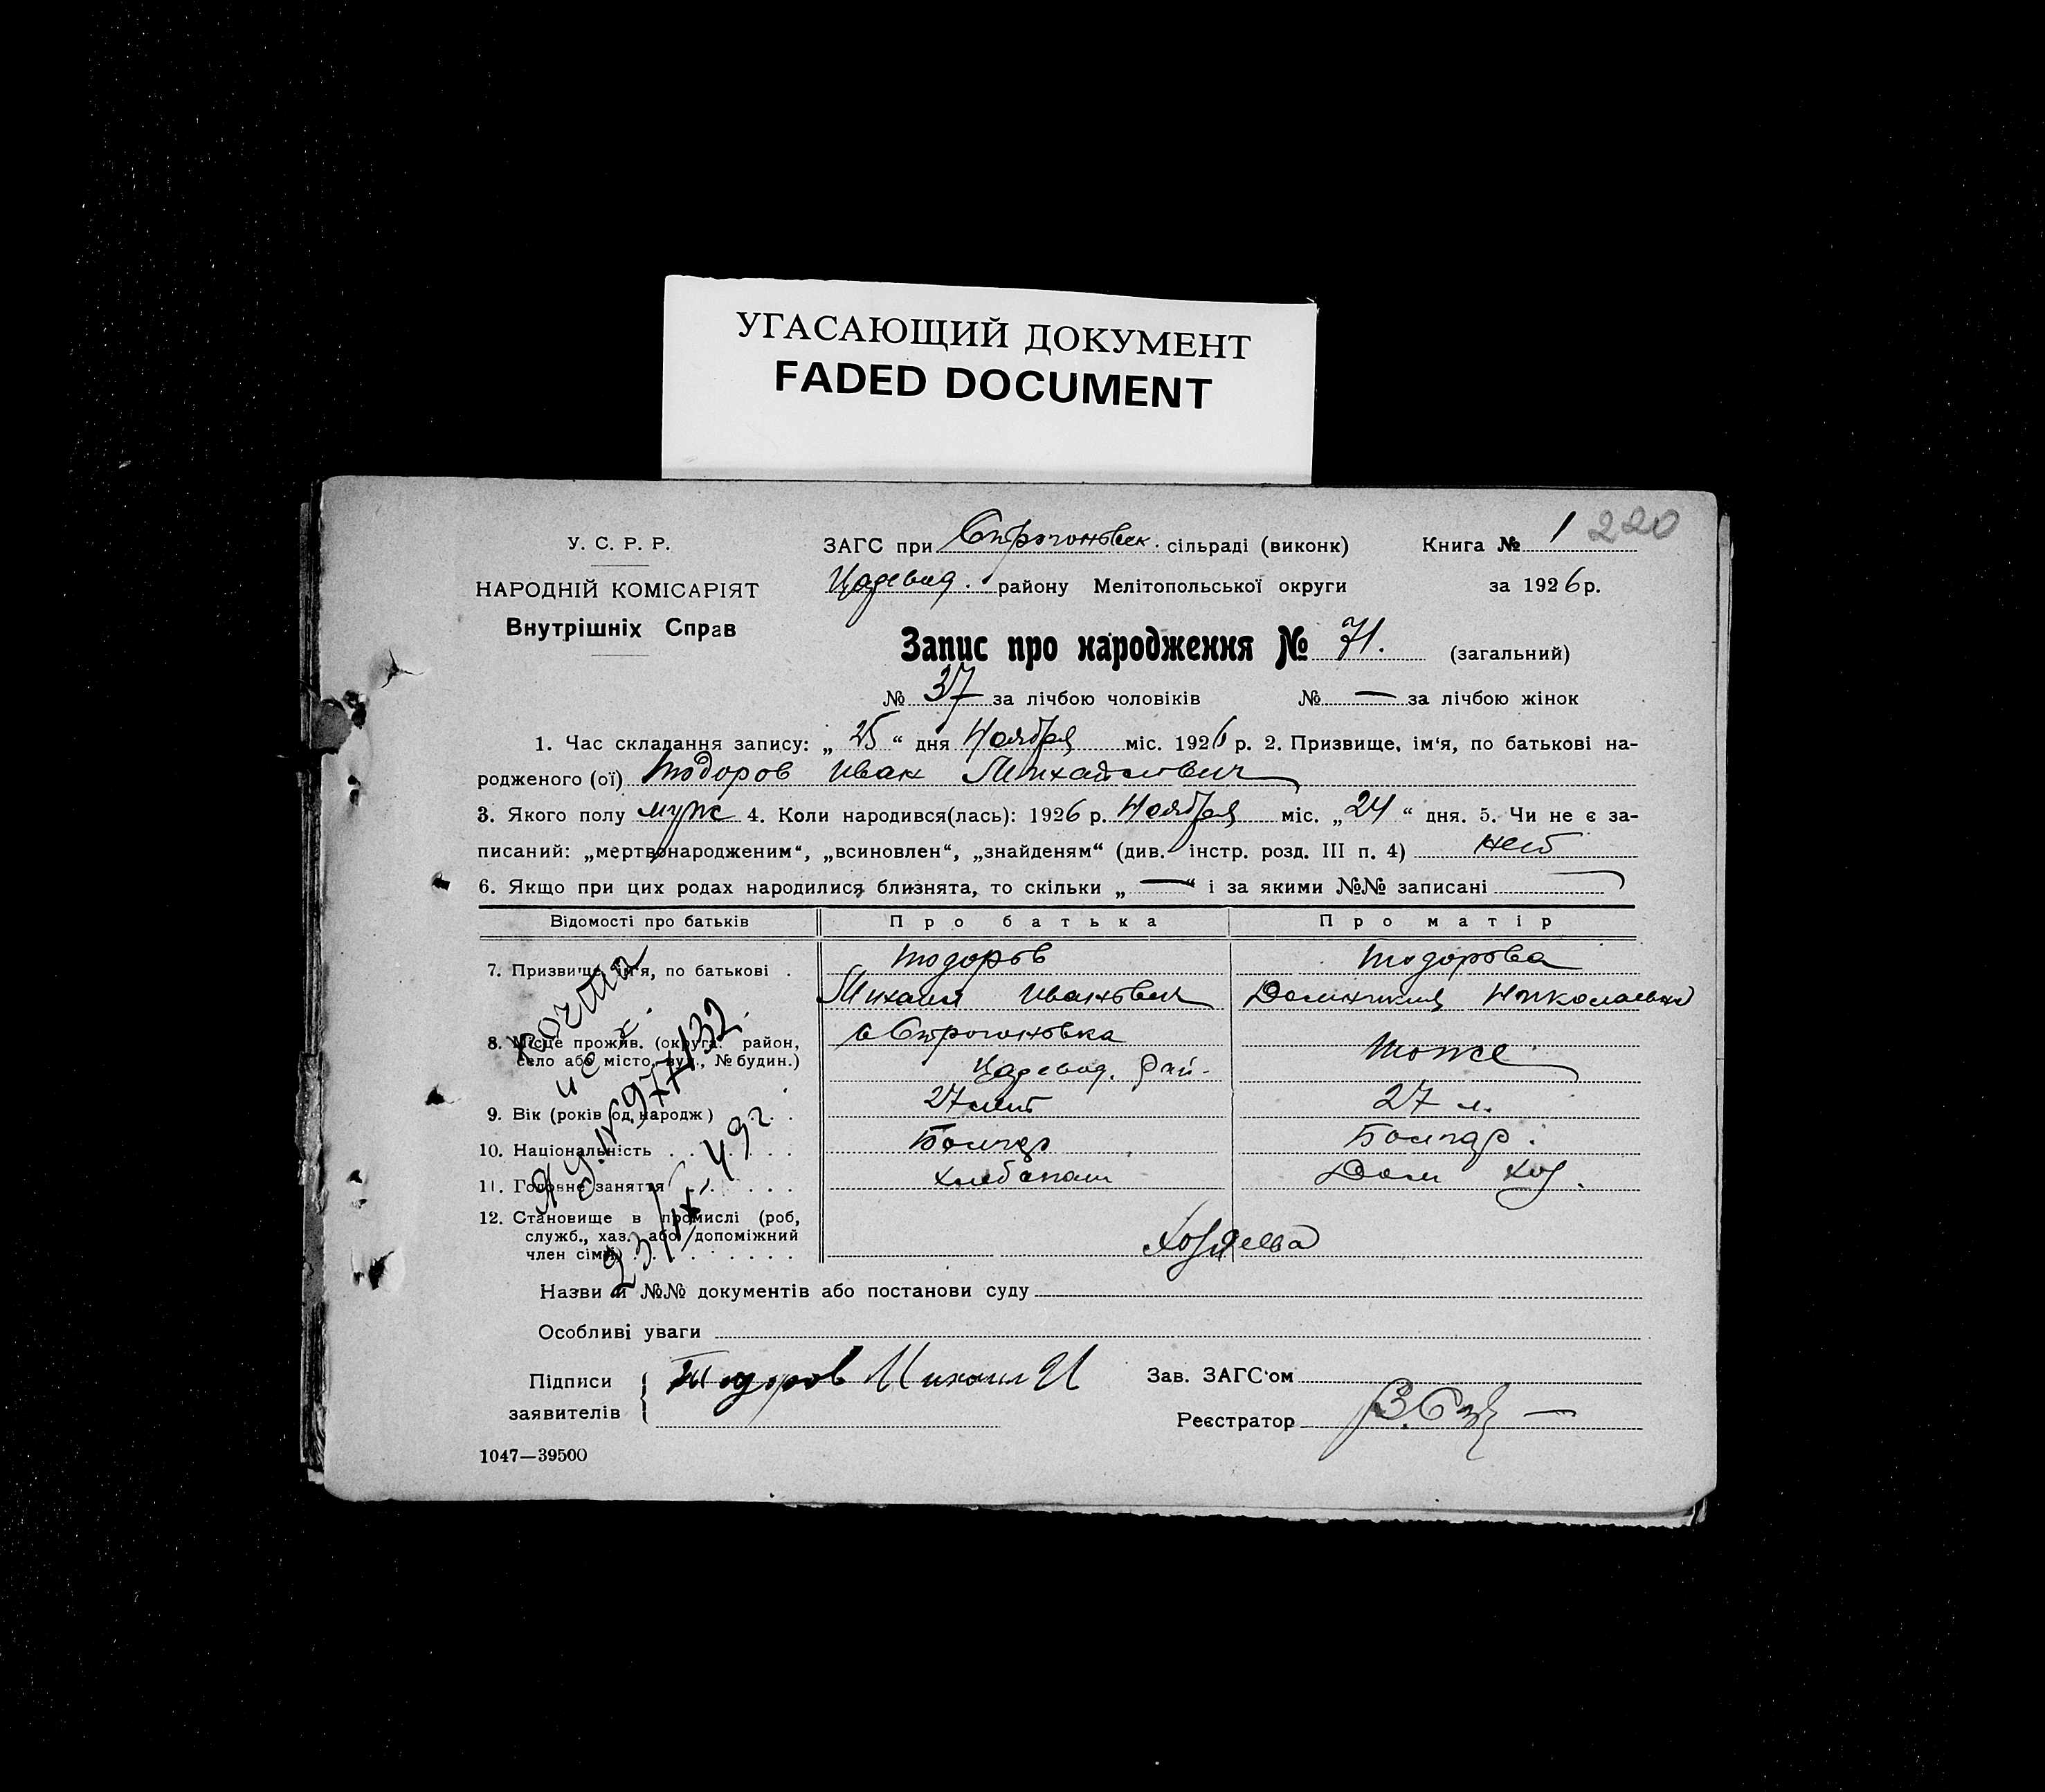 УГАСАЮЩИЙ ДОКУМЕНТ
FADED DOCUMENT
220
У. С. Р. Р.
НАРОДНІЙ КОМІСАРІЯТ
Внутрішніх Справ
ЗАГС при Строгоновск. сільраді (виконк) Книга № 1
Цареввод. району Мелітопольської округи за 1926 р.
Запис про народження № 71. (загальний)
№ 37 за лічбою чоловіків № — за лічбою жінок
1. Час складання запису: „ 25 “ дня Ноября міс. 1926 р. 2. Призвище, ім‘я, по батькові на-
родженого (ої) Тодоров Иван Михайлович
3. Якого полу муж 4. Коли народився(лась): 1926 р. Ноября міс. „ 24 “ дня. 5. Чи не є за-
писаний: „мертвонародженим“, „всиновлен“, „знайденям“ (див. інстр. розд. III п. 4) нет
6. Якщо при цих родах народилися близнята, то скільки „ — “ і за якими №№ записані —
Відомості про батьків Про батька Про матір
7. Призвище, ім‘я, по батькові . Тодоров Тодорова
Михаил Иванович Николаевна
8. Місце прожив. (округа: район, с Строгоновка тоже
село або місто, вул., № будин.) рай-
9. Вік (років од народж) . . . 27 лет 27 л.
10. Національність . . . . . . Болгар Болгар.
11. Головне заняття . . . . . хлебопаш Дом хоз.
12. Становище в промислі (роб,
служб., хаз. або допоміжний
член сімї) . . . . . . . . . Хозяева
Назви й №№ документів або постанови суду
Особливі уваги
Підписи Тодоров Михаил И Зав. ЗАГС‘ом
заявителів Реєстратор
1047—39500
23/IX 49 г